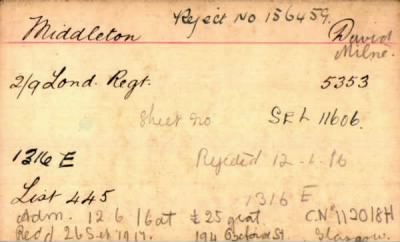 Reject No 156459.
Middleton David
Milne.
2/9 Lond. Regt. 5353
Sheet no SEL 11606.
1316 E Rejected 12-1-16
List 445 1316 E
Adm. 12 6 16 at £25 grat C.N° 112018H
Recd 26 Sep 1917. 194 St. Glasgow.